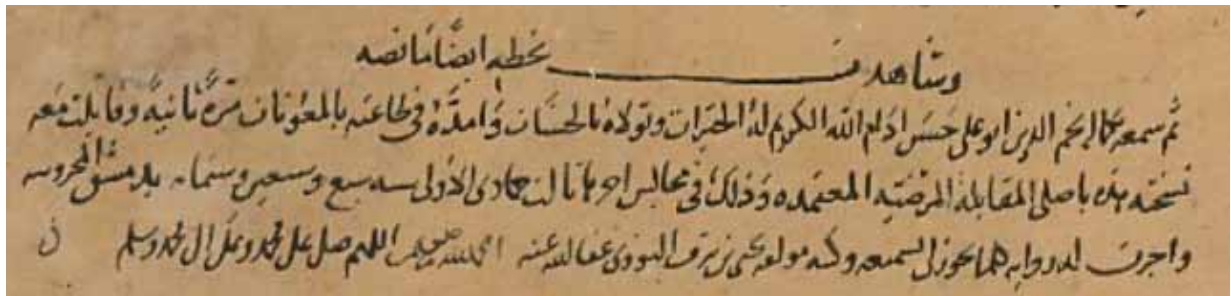 وشاهدت بخطه ايضا ما نصه
ثم سمعه علي نجم الدين ابو علي حسن ادام الله الكريم له الخيرات وتولاه بالحسنات وامده في طاعته بالمعونات مرة ثانية وقابلت معه
نسخته هذه باصلي المقابلة المرضية المعتمده وذلك في مجالس اخرها ثالث جمادى الاولى سنه سبع وسبعين وستمايه بدمشق المحروسه
واجزت له روايه كلما يجوز لي تسميعه وكتبه مولفه يحيى بن شرف النووي عفا الله عنه الحمد لله اللهم صل على محمد وعلى ال محمد وسلم